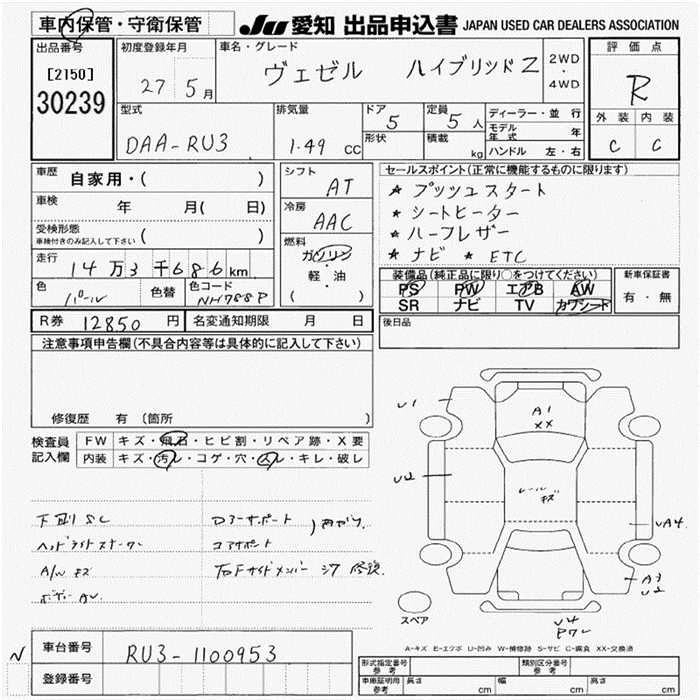 車内保管・守衛保管 JU 愛知 出品申込書 JAPAN USED CAR DEALERS ASSOCIATION
出品番号 初度登録年月 車名・グレード 評価点
[2150] 27 5月 ヴェゼル ハイブリッドZ 2WD・4WD R
30239 型式 排気量 ドア 5 定員 5人 ディーラー・並行 外装 内装
DAA-RU3 1.49 cc 形状 積載 kg モデル年式 年 C C
ハンドル 左・右
車歴 自家用・( ) シフト AT セールスポイント(正常に機能するものに限ります)
車検 年 月( 日) 冷房 AAC ★ プッシュスタート
受検形態 ( ) ★ シートヒーター
車検付きのみ記入して下さい 燃料 ★ ハーフレザー
走行 14万3千686km ガソリン ★ ナビ ★ ETC
色 パール 色替 色コード NH788P 軽・油 ( )
装備品(純正品に限り○をつけてください) 新車保証書
PS PW エアB AW 有・無
SR ナビ TV カワシート
R券 12850円 名変通知期限 月 日 後日品
注意事項申告欄(不具合内容等は具体的に記入して下さい)
修復歴 有 (箇所 )
検査員記入欄 FW キズ・飛石・ヒビ割・リペア跡・X要
内装 キズ・汚レ・コゲ・穴・スレ・キレ・破レ
下廻りSC Dアーサポート
コアサポート
A/W キズ 右Fサイドメンバー 修復
U1
A1
XX
U2
レールキズ
UA4
A3
U2
U4
スペア
A-キズ E-エクボ U-凹み W-補修跡 S-サビ C-腐食 XX-交換済
N 車台番号 RU3-1100953
登録番号
形式指定番号 参考 類別区分番号 参考
車庫証明用 参考 長さ cm 幅 cm 高さ cm